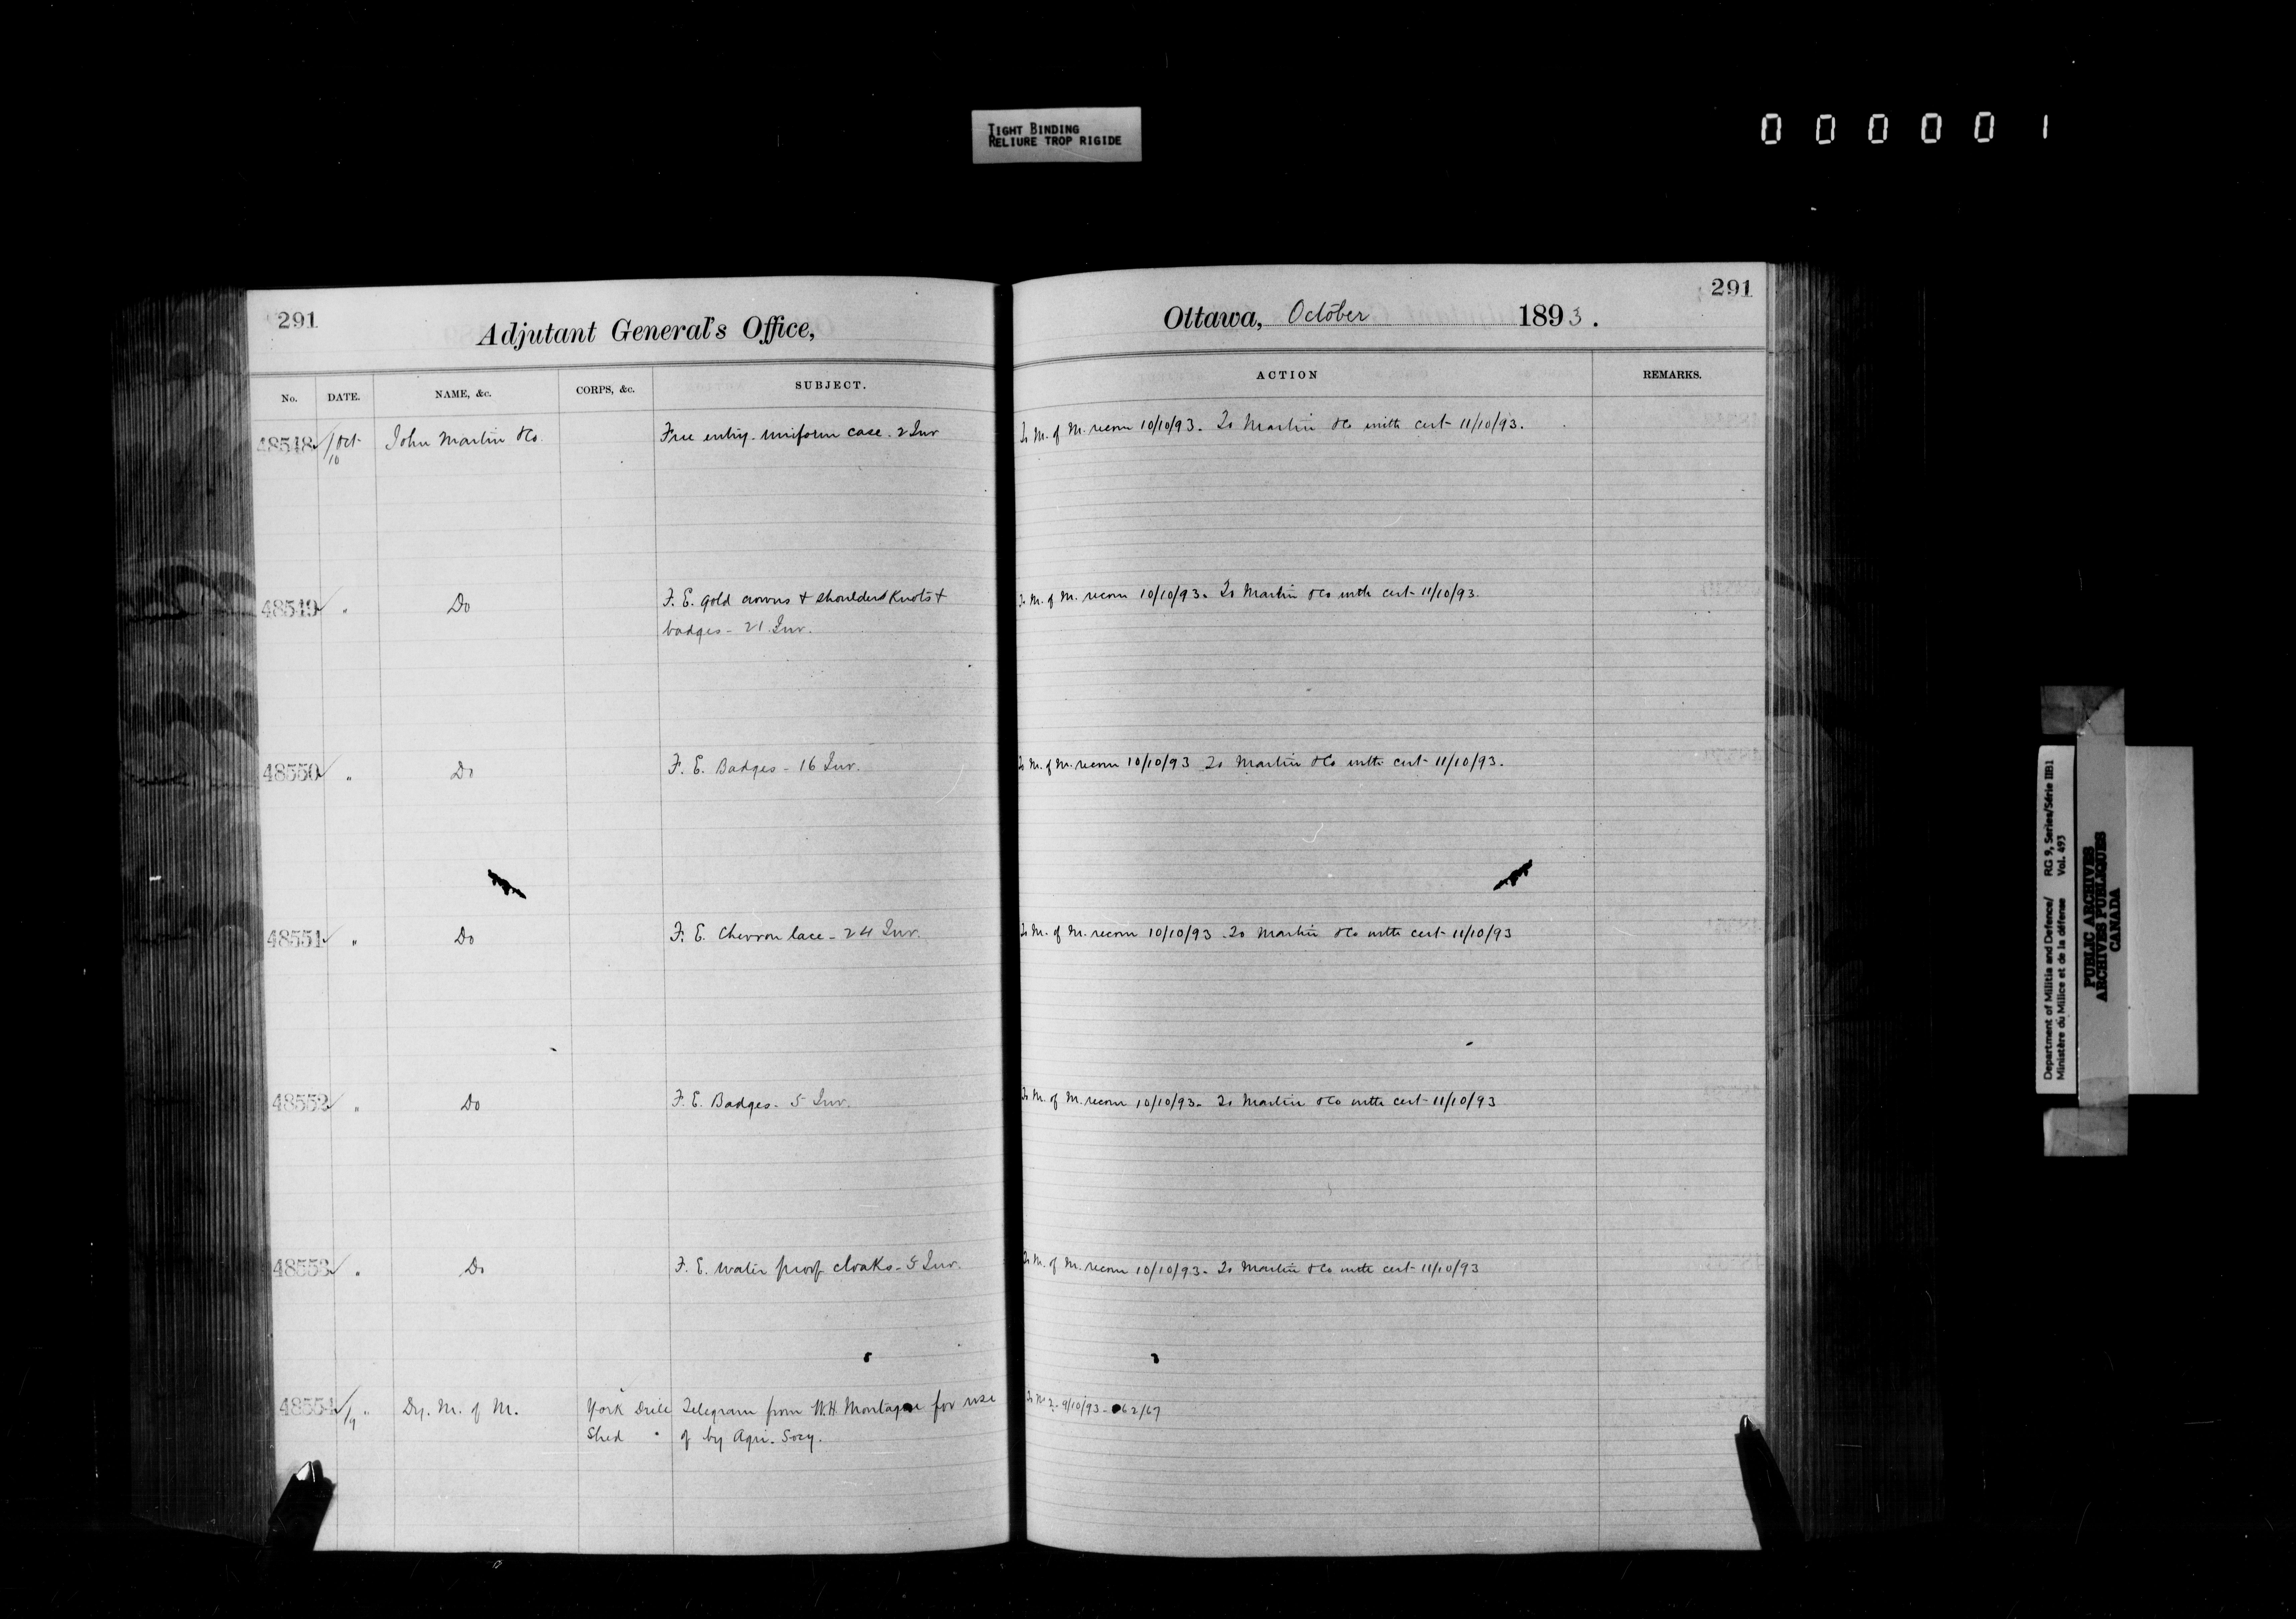 TIGHT BINDING
RELIURE TROP RIGIDE
000001
291
Adjutant General's Office,
No. DATE. NAME, &c. CORPS, &c. SUBJECT.
48548 Oct 10 John Martin &Co. Free entry. uniform case. 2 Inv
48549 " Do F. E. gold crowns + shoulder knots +
badges - 21 Inv.
48550 " Do F. E. Badges - 16 Inv.
48551 " Do F. E. Chevron lace - 24 Inv.
48552 " Do F. E. Badges - 5 Inv.
48553 " Do F. E. water proof cloaks - 5 Inv.
48554 /9 " Dy. M. of M. York Drill Telegram from W.H. Montague for use
Shed of by Agri. Socy.
291
Ottawa, October 1893.
ACTION REMARKS.
To M. of M. recom 10/10/93. To Martin &Co with cert 11/10/93.
To M. of M. recom 10/10/93. To Martin &Co with cert 11/10/93.
To M. of M. recom 10/10/93 To Martin &Co with cert 11/10/93.
To M. of M. recom 10/10/93 - To Martin &Co with cert 11/10/93
To M. of M. recom 10/10/93. To Martin &Co with cert 11/10/93
To M. of M. recom 10/10/93. To Martin &Co with cert 11/10/93
9/10/93 - 62/67
Department of Militia and Defence/ RG 9, Series/Série IIB1
Ministère du Milice et de la défense Vol. 493
PUBLIC ARCHIVES
ARCHIVES PUBLIQUES
CANADA